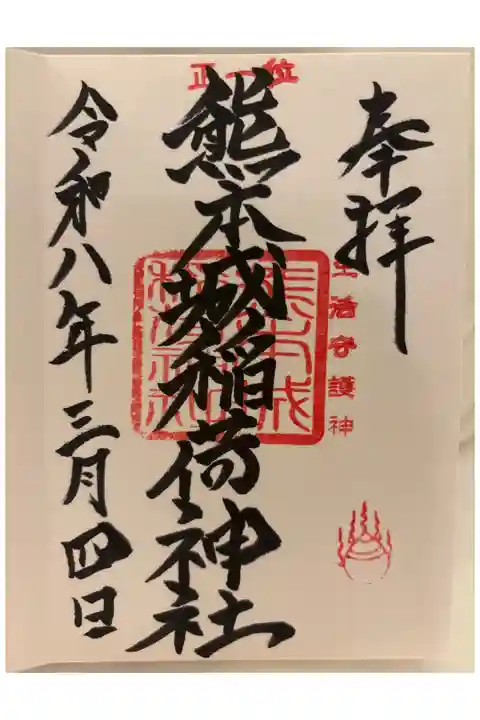 奉拝
生活守護神
正一位
熊本城稲荷神社
令和八年三月四日